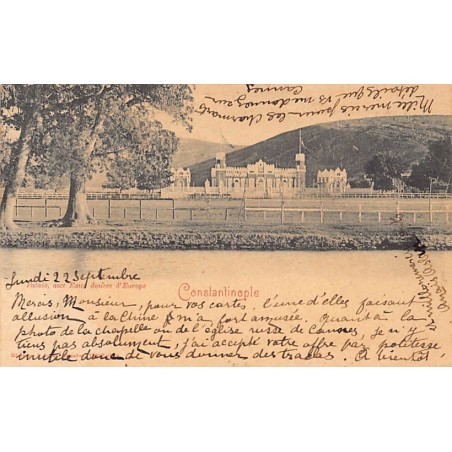 Mille mercis pour les charmants
détails que vs me donnez sur
Cannes
Palais, aux Eaux douces d'Europe
Constantinople
Lundi 22 Septembre
Mercis, Monsieur, pour vos cartes, l'une d'elles faisant
allusion à la Chine m'a fort amusée. quant à la
photo de la chapelle ou de l'église russe de Cannes, je n'y
tiens pas absolument, j'ai accepté votre offre par politesse
inutile donc de vous donner des tracas. A bientôt,